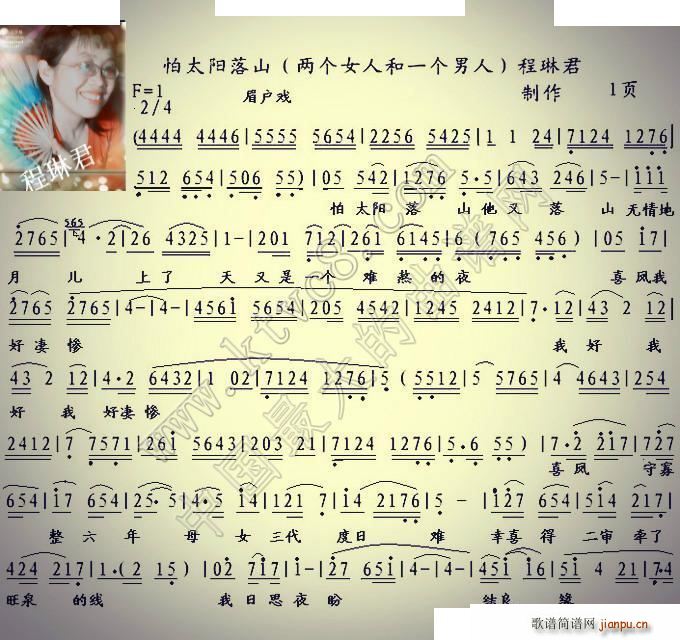 怕太阳落山（两个女人和一个男人）程琳君
F=1
2/4
眉户戏
制作 1页
程琳君
(4444 4446|5555 5654|2256 5425|1 1 24|7124 1276|
512 654|506 55)|05 542|1276 5·5|643 246|5-|111
怕太阳落 山他又落 山无情地
2765|4· 2|26 4325|1-|201 712|261 6145|6(765 456)|05 17|
565
月 儿 上了 天又是一个 难熬的夜 喜凤我
2765 2765|4-|4-|4561 5654|205 4542|1245 2412|7·12|43 212|
好凄惨 我好 我
43 2 12|4·2 6432|1 02|7124 1276|5 (5512|5 5765|4 4643|254
好 我 好凄惨
2412|7 7571|261 5643|203 21|7124 1276|5·6 55)|7·2 217|727
喜凤 守寡
654|17 654|25·5|4·246|121 7|14 2176|5-|127 654|254 217|
整六年 母女三代 度日 难 幸喜得 二审牵了
424 217|1·(2 15)|217 65|1· 27 651|4-|4-|451 651|51 2|7·4
旺泉 的线 我日思夜盼 结良 缘
www.ktvc8.com
中国最大的曲谱网
歌谱简谱网
jianpu.cn